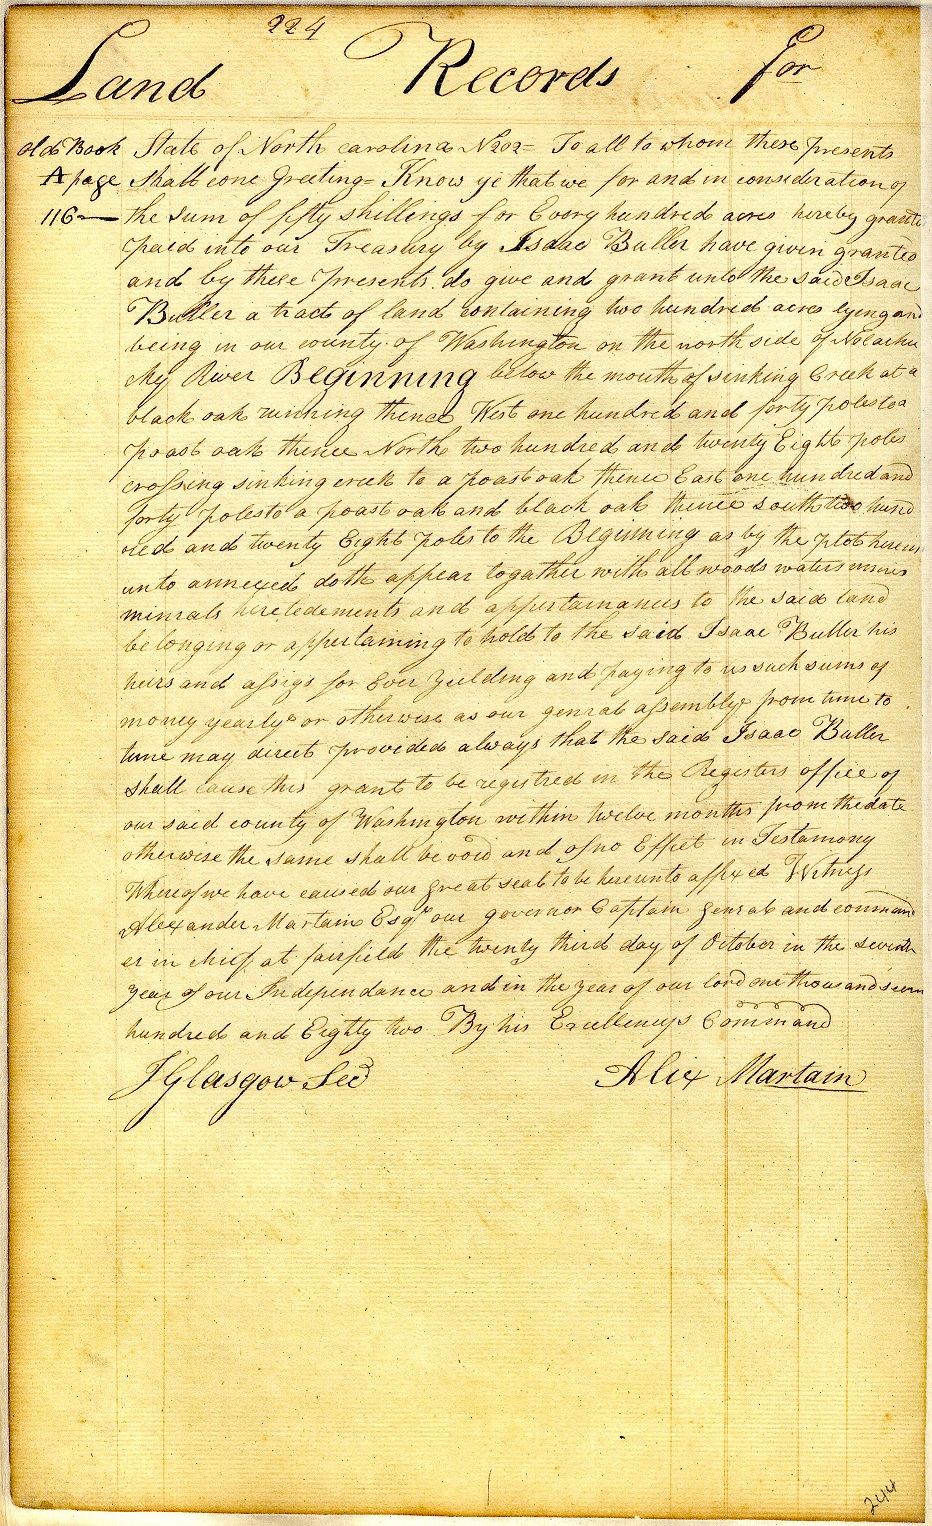 224
Land Records for
old Book State of North carolina No 202= To all to whom these presents
A page shall come Greeting= Know ye that we for and in consideration of
116— the sum of fifty shillings for Every hundred acres hereby granted
paid into our Treasury by Isaac Buller have given granted
and by these presents do give and grant unto the said Isaac
Buller a tract of land containing two hundred acres lying and
being in our county of Washington on the north side of Nolachu
cky River Beginning below the mouth of sinking Creek at a
black oak running thence West one hundred and forty poles to a
poast oak thence North two hundred and twenty Eight poles
crossing sinking creek to a poast oak thence East one hundred and
forty poles to a poast oak and black oak thence south two hund
red and twenty Eight poles to the Beginning as by the plot here
unto annexed doth appear together with all woods waters mines
minrals heretedements and appertainances to the said land
belonging or appertaining to hold to the said Isaac Buller his
heirs and assigs for Ever yielding and paying to us such sums of
money yearly or otherwise as our genral assembly from time to
time may direct provided always that the said Isaac Buller
shall cause this grant to be registred in the Registers office of
our said county of Washington within twelve months from the date
otherwise the same shall be void and of no Effect in Testamony
Whereof we have caused our great seal to be hereunto affixed Witness
Alexander Martain Esqr our governor Captain genral and command
er in chief at fairfield the twenty third day of October in the seventh
year of our Independance and in the year of our lord one thousand seven
hundred and Eighty two By his Excellencys Command
J Glasgow Sec Alix Martain
244